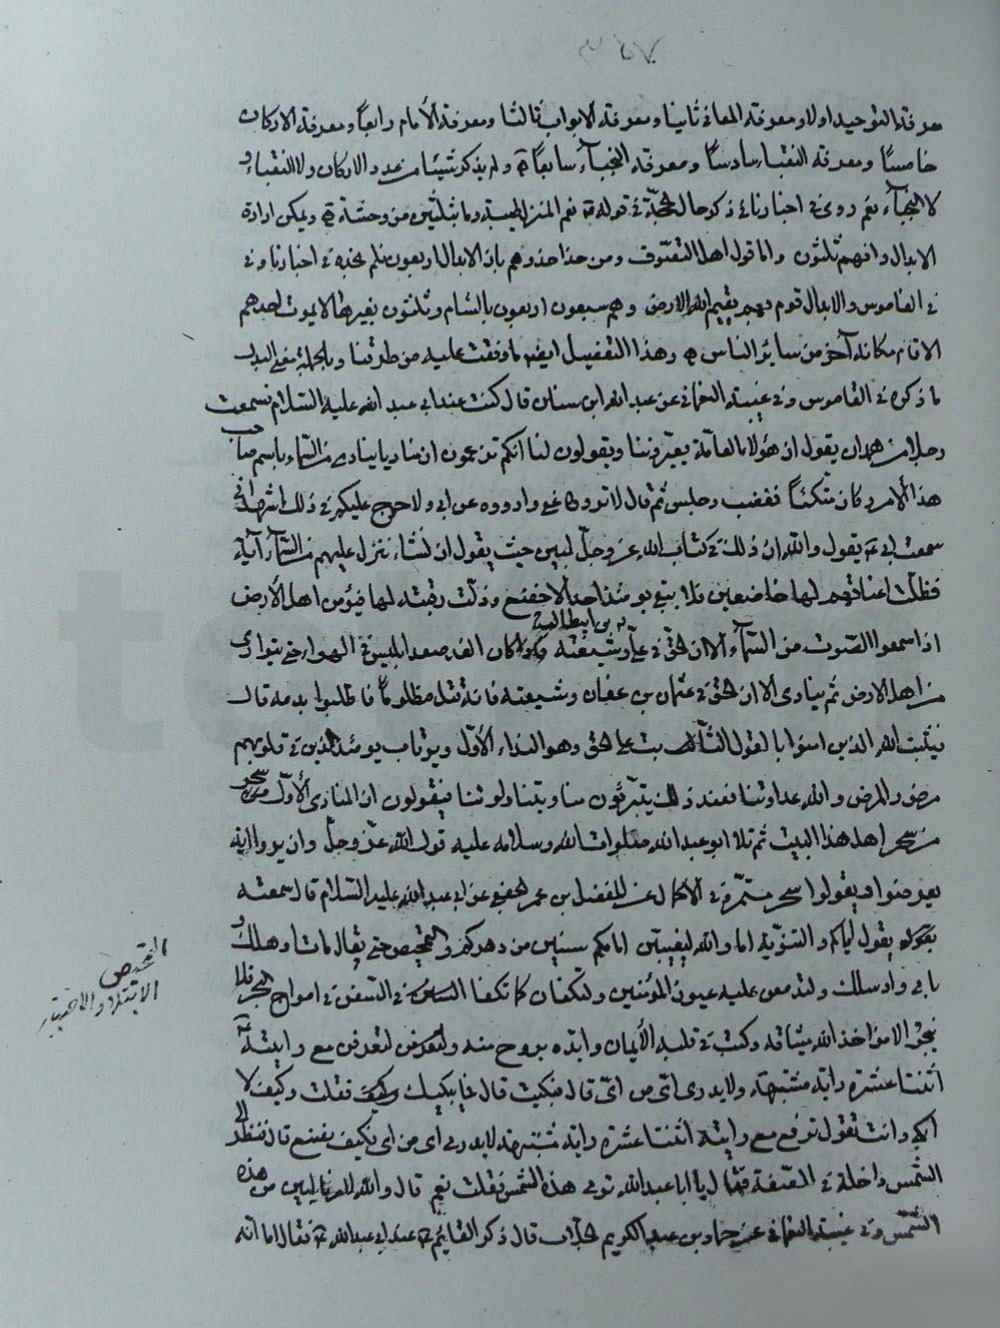 معرفة التوحيد اولا ومعرفة المعانى ثانيا ومعرفة الابواب ثالثا ومعرفة الأمام رابعاً ومعرفة الاركان
خامسًا ومعرفة النقباء سادسًا ومعرفة النجبآء سابعًا ولم يذكر شيئا من عدد الاركان ولا النقباء و
لا النجبآء نعم روى فى اخبارنا فى ذكر حال الحجّة فى قوله ع نعم المنزل طيبة وما بثلثين من وحشة ويمكن ارادة
الابدال وانهم ثلثون واما قول اهل التصّوف ومن حذا حذوهم بان الابدال اربعون فلم نجده فى اخبارنا وفى
فى القاموس والابدال قوم بهم يقيم الله الارض وهم سبعون اربعون بالشام وثلثون بغيرها لا يموت احدهم
الا قام مكانه آخر من سائر الناس وهذا التفصيل ايضا ما وقفت عليه من طرقنا وبالجملة معنى البدل
ما ذكره فى القاموس وفى غيبة النعمانى عن عبد الله ابن سنان قال كنت عند ابى عبد الله عليه السّلام فسمعت
رجلا من همدان يقول ان هؤلاء العامّة يعيّروننا ويقولون لنا انّكم تزعمون ان مناديا ينادى من السّماء باسم صاحب
هذا الأمر وكان متكئًا فغضب وجلس ثم قال لا ترووه عنى وارووه عن ابى ولا حرج عليكم فى ذلك اشهد انى
سمعت ابى ع يقول والله ان ذلك فى كتاب الله عز وجلّ لبيّن حيث يقول ان نشاء ننزل عليهم من السّمآء آية
فظلّت اعناقهم لها خاضعين فلا يبقى يومئذ احد الا خضع وذلّت رقبته لها فيؤمن اهل الأرض
بن ابيطالب
اذا سمعوا الصّوت من السّمآء ألا ان الحق فى علّى وشيعته فاذا كان الغد صعد ابليس فى الهواء حتى يتوارى
من اهل الارض ثم ينادى الا ان الحق فى عثمان بن عفان وشيعته فانه قتل مظلوماً فاطلبوا بدمه قال
فيثبت الله الذين امنوا بالقول الثّابت على الحق وهو النداء الأوّل ويرتاب يومئذ الذين فى قلوبهم
مرض والمرض والله عداوتنا فعند ذلك يتبرّئون منا ويتناولوننا فيقولون ان المنادى الأوّل سحر
من سحر اهل هذا البيت ثم تلا ابو عبد الله صلوات الله وسلامه عليه قول الله عزّ وجلّ وان يروا اية
يعرضوا ويقولوا سحر مستمرّ فى الاكمال عن المفضل بن عمر الجعفى عن ابى عبد الله عليه السّلام قال سمعته
يقول اياكم والتنويه اما والله ليغيبنّ امامكم سنين من دهركم والتمحيص حتى يقال مات او هلك
باى واد سلك ولتدمعن عليه عيون المؤمنين ولتكفان كما تكفا السفن فى امواج البحر فلا
ينجو الا من اخذ الله ميثاقه وكتب فى قلبه الأيمان وايّده بروح منه ولترفعن
اثنتا عشرة راية مشتبهة ولا يدرى اىّ من اىّ قال فبكيت قال ما يبكيك فقلت وكيف لا
ابكى وانت تقول ترفع اثنتا عشرة راية مشتبهة لا يدرى اى من اى فكيف نصنع قال فنظر الى
الشمس داخلة فى الصّفة فقال يا ابا عبد الله ترى هذه الشمس فقلت نعم قال والله لامرنا ابين من هذه
الشّمس وفى غيبة النعمانى عن حماد بن عبد الكريم الجلّاب قال ذكر القايم ع عند ابى عبد الله ع فقال اما انّه
التمحيص
الابتلاء والاختبار